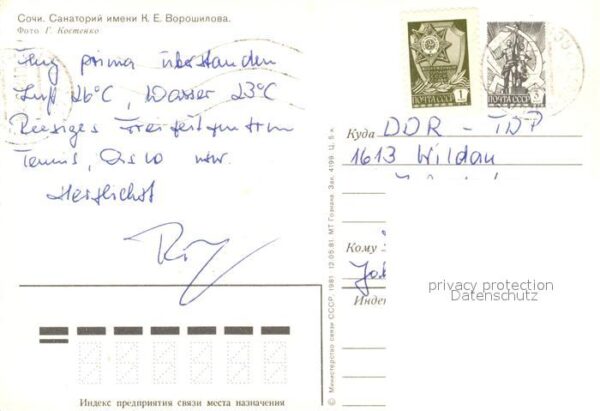 Сочи. Санаторий имени К. Е. Ворошилова.
Фото Г. Костенко
Flug prima überstanden
Luft 26°C, Wasser 23°C
Riesiges Freizeitzentrum
Tennis, Disco usw.
Herzlichst
ПОЧТА СССР 1
ПОЧТА СССР 3
Куда DDR - TDP
1613 Wildau
Кому
Индек
privacy protection
Datenschutz
© Министерство связи СССР, 1981. 12.05.81. МТ Гознака. Зак. 4199. Ц. 5 к.
Индекс предприятия связи места назначения